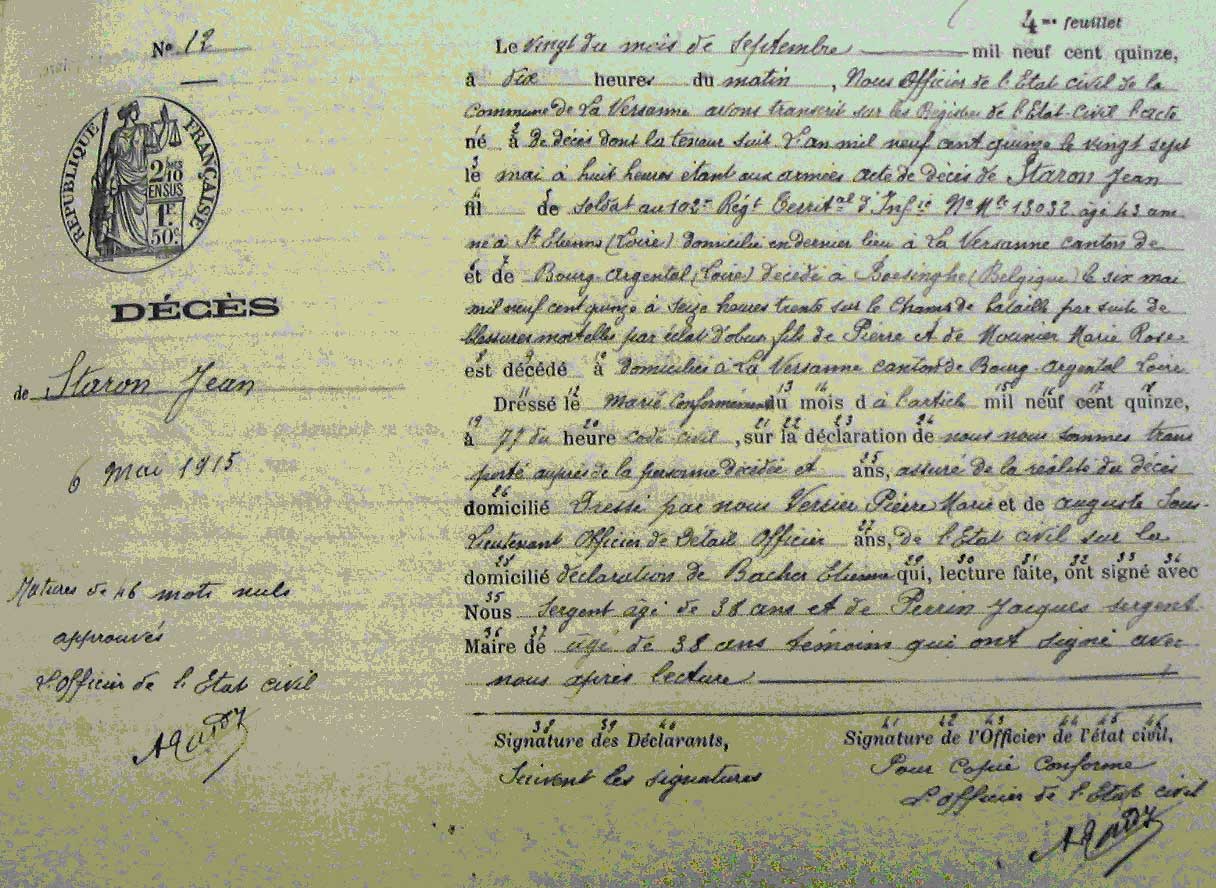 4me feuillet
N° 12
RÉPUBLIQUE FRANÇAISE
2/10 EN SUS
1F 50c
DÉCÈS
de Staron Jean
6 Mai 1915
Ratures de 46 mots nuls
approuvés
L'Officier de l'Etat civil
Le vingt du mois de septembre mil neuf cent quinze,
à dix heures du matin, Nous Officier de l'Etat civil de la
Commune de La Versanne avons transcrit sur les Registres de l'Etat-Civil l'acte
1 2
né à De décès dont la teneur suit L'an mil neuf cent quinze le vingt sept
3
le mai à huit heures étant aux armées acte de décès de Staron Jean
4 5
fil de Soldat au 102e Régt Territal d'Infie No Mle 13032 agé 43 ans
né à St Etienne (Loire) domicilié en dernier lieu à La Versanne canton de
6 7
et de Bourg-Argental (Loire) décédé à Boesinghe (Belgique) le six mai
mil neuf cent quinze à seize heures trente sur le champ de bataille par suite de
blessures mortelles par éclat d'obus fils de Pierre et de Mounier Marie Rose
8 9 10
est décédé à Domiciliés à La Versanne canton de Bourg Argental Loire
11 12 13 14 15 16 17 18
Dressé le Marié Conformément du mois d à l'article mil neuf cent quinze,
19 20 21 22 23 24
à 77 du heure code civil, sur la déclaration de nous nous sommes trans
25
porté auprès de la personne décédée et ans, assuré de la réalité du décès
26
domicilié Dressé par nous Versier Pierre Marie et de Auguste Sous-
27
Lieutenant Officier de Détail Officier ans, de l'Etat civil sur la
28 29 30 31 32 33 34
domicilié déclaration de Bacher Etienne qui, lecture faite, ont signé avec
35
Nous Sergent âgé de 38 ans et de Perrin Jacques sergent
36 37
Maire de âgé de 38 ans témoins qui ont signé avec
nous après lecture
38 39 40
Signature des Déclarants,
Suivent les signatures
41 42 43 44 45 46
Signature de l'Officier de l'état civil,
Pour Copie Conforme
L'Officier de l'Etat civil